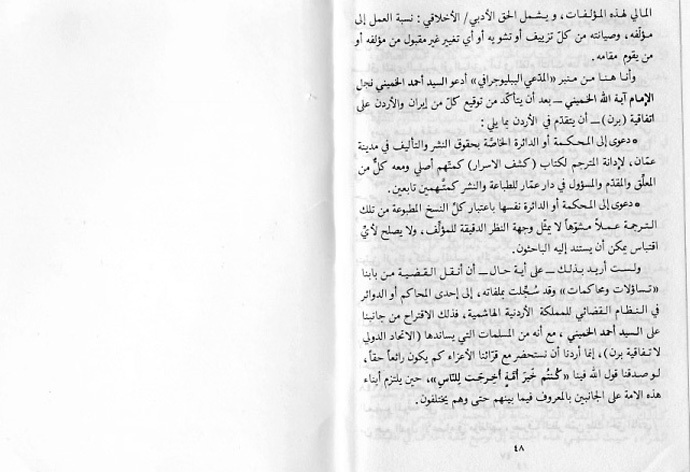 المالي لهذه المؤلفات، ويشمل الحق الأدبي/ الأخلاقي: نسبة العمل إلى
مؤلّفه، وصيانته من كلّ تزييف أو تشويه أو أي تغيير غير مقبول من مؤلفه أو
من يقوم مقامه.
وأنا هنا من منبر «المدّعي الببليوجرافي» أدعو السيد أحمد الخميني نجل
الإمام آية الله الخميني ــ بعد أن يتأكّد من توقيع كلّ من إيران والأردن على
اتفاقية (برن) ــ أن يتقدّم في الأردن بما يلي:
• دعوى إلى المحكمة أو الدائرة الخاصّة بحقوق النشر والتأليف في مدينة
عمّان، لإدانة المترجم لكتاب (كشف الاسرار) كمتّهم أصلي ومعه كلٌّ من
المعلّق والمقدّم والمسؤول في دار عمّار للطباعة والنشر كمتَّهمين تابعين.
• دعوى إلى المحكمة أو الدائرة نفسها باعتبار كلّ النسخ المطبوعة من تلك
الترجمة عملاً مشوّهاً لا يمثّل وجهة النظر الدقيقة للمؤلّف، ولا يصلح لأيِّ
اقتباس يمكن أن يستند إليه الباحثون.
ولست أريد بذلك ــ على أية حال ــ أن أنقل القضية من بابنا
«تساؤلات ومحاكمات» وقد سُجِّلت بملفاته، إلى إحدى المحاكم أو الدوائر
في النظام القضائي للمملكة الأردنية الهاشمية، فذلك الاقتراح من جانبنا
على السيد أحمد الخميني، مع أنه من المسلمات التي يساندها (الاتحاد الدولي
لاتفاقية برن)، إنما أردنا أن نستحضر مع قرّائنا الأعزاء كم يكون رائعاً حقاً،
لو صدقنا قول الله فينا «كُنتُم خَيرَ أمّةٍ أخرِجَت لِلنّاسِ»، حين يلتزم أبناء
هذه الامة على الجانبين بالمعروف فيما بينهم حتى وهم يختلفون.
٤٨